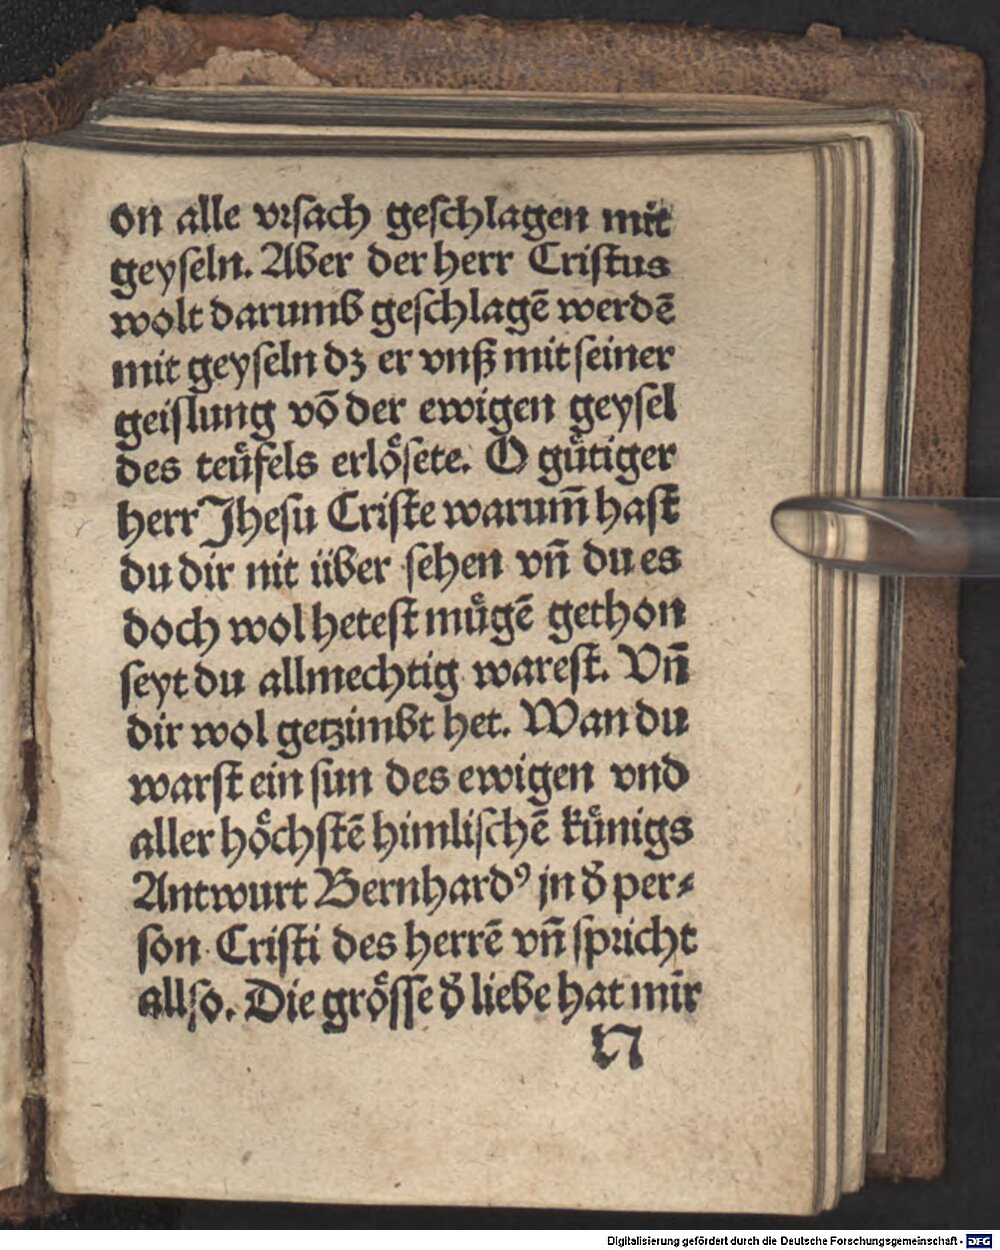 on alle vrsach geschlagen mit
geyseln. Aber der herr Cristus
wolt darumb geschlagē werdē
mit geyseln dz er vnß mit seiner
geislung vō der ewigen geysel
des teüfels erlöſete. O gütiger
herr Jhesu Criste warum̄ hast
du dir nit über sehen vn̄ du es
doch wol hetest mügē gethon
seyt du allmechtig warest. Vn̄
dir wol getzimbt het. Wan du
warst ein sun des ewigen vnd
aller höchstē himlischē künigs
Antwurt Bernhardꝰ jn d̄ per⸗
son Cristi des herrē vn̄ spricht
allso. Die grösse d̄ liebe hat mir
N
Digitalisierung gefördert durch die Deutsche Forschungsgemeinschaft - DFG